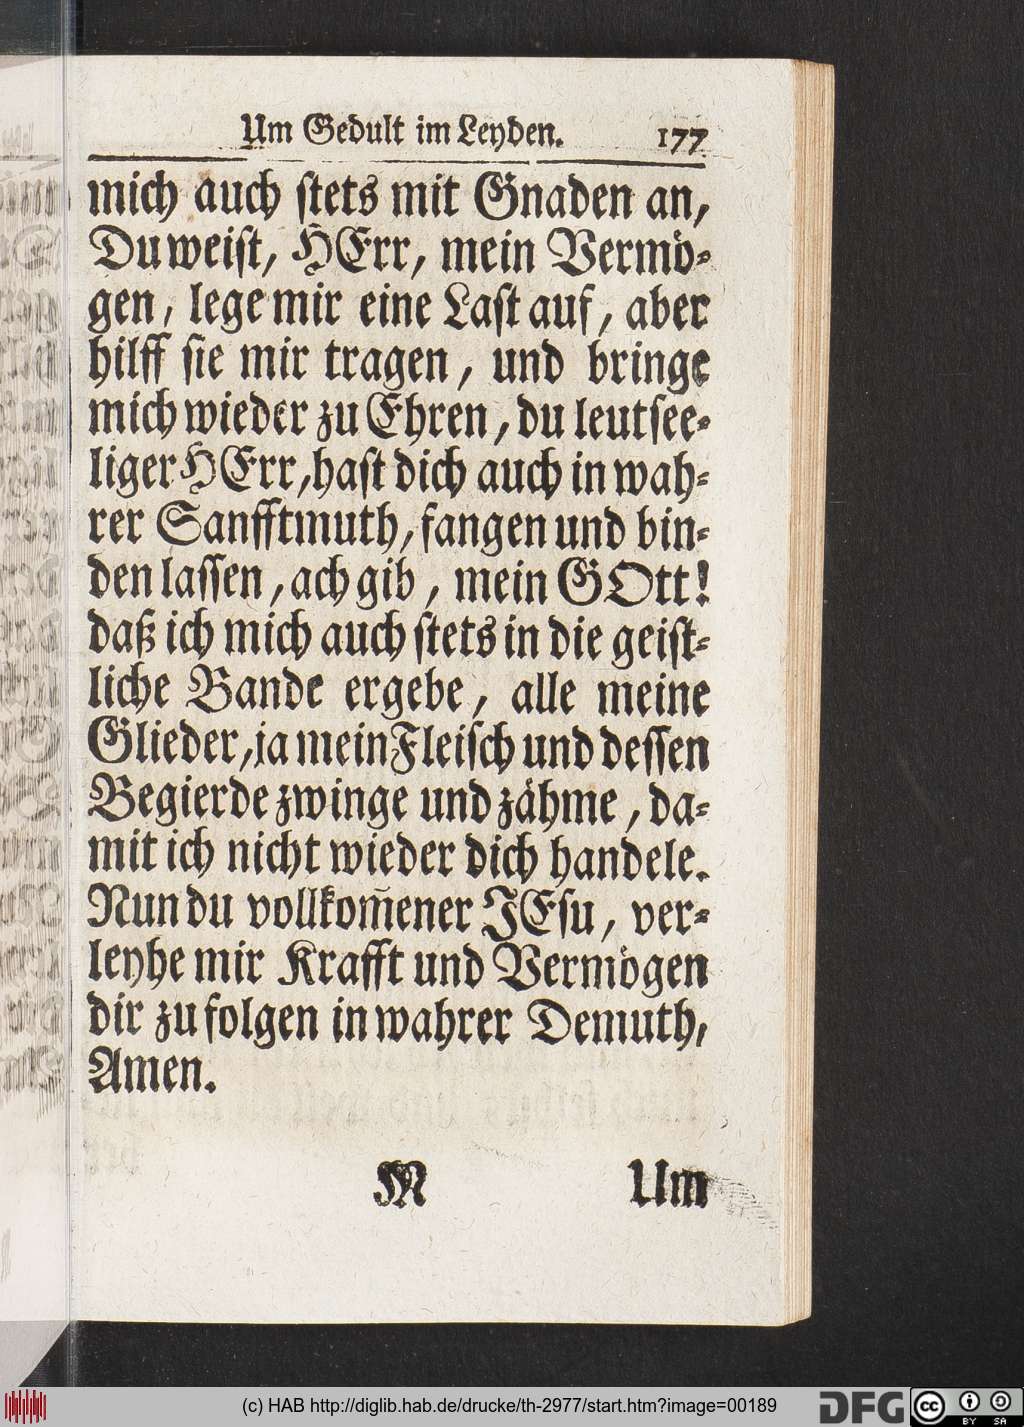 Um Gedult im Leyden. 177
mich auch stets mit Gnaden an,
Du weist, HErr, mein Vermö-
gen, lege mir eine Last auf, aber
hilff sie mir tragen, und bringe
mich wieder zu Ehren, du leutsee-
liger HErr, hast dich auch in wah-
rer Sanfftmuth, fangen und bin-
den lassen, ach gib, mein GOtt!
daß ich mich auch stets in die geist-
liche Bande ergebe, alle meine
Glieder, ja mein Fleisch und dessen
Begierde zwinge und zähme, da-
mit ich nicht wieder dich handele.
Nun du vollkom̅ener JEsu, ver-
leyhe mir Krafft und Vermögen
dir zu folgen in wahrer Demuth,
Amen.
M Um
(c) HAB http://diglib.hab.de/drucke/th-2977/start.htm?image=00189
DFG cc BY SA